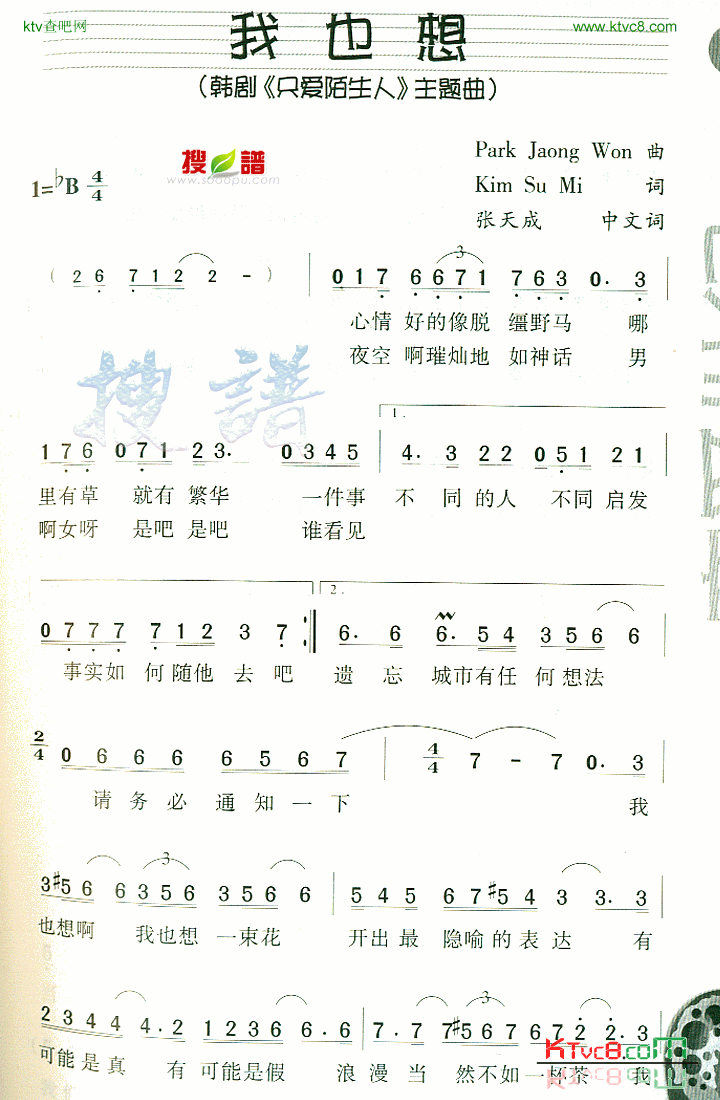 ktv查吧网
www.ktvc8.com
我也想
(韩剧《只爱陌生人》主题曲)
搜谱
www.sooopu.com
Park Jaong Won 曲
1=♭B 4/4
Kim Su Mi 词
张天成 中文词
( 2 6 7 1 2 2 2 - ) 0 1 7 6 6 7 1 7 6 3 0. 3
3
心情 好的像脱 缰野马 哪
夜空 啊璀灿地 如神话 男
搜譜
1.
1 7 6 0 7 1 2 3. 0 3 4 5 4. 3 2 2 0 5 1 2 1
里有草 就有 繁华 一件事 不 同的人 不同启发
啊女呀 是吧 是吧 谁看见
2.
0 7 7 7 7 1 2 3 7 6. 6 6. 5 4 3 5 6 6
事实如 何随他 去吧 遗 忘 城市有任 何想法
2/4 0 6 6 6 6 5 6 7 4/4 7 - 7 0. 3
请务必 通知一下 我
3 #5 6 6 3 5 6 3 5 6 6 5 4 5 6 7 #5 4 3 3 3. 3
3
也想啊 我也想 一束花 开出最 隐喻的表达 有
2 3 4 4 4. 2 1 2 3 6 6. 5 7. 7 7 #5 6 7 6 7 2 2. 3
3
可能是真 有可能是假 浪漫当 然不如一杯茶 我
KTvc8.com